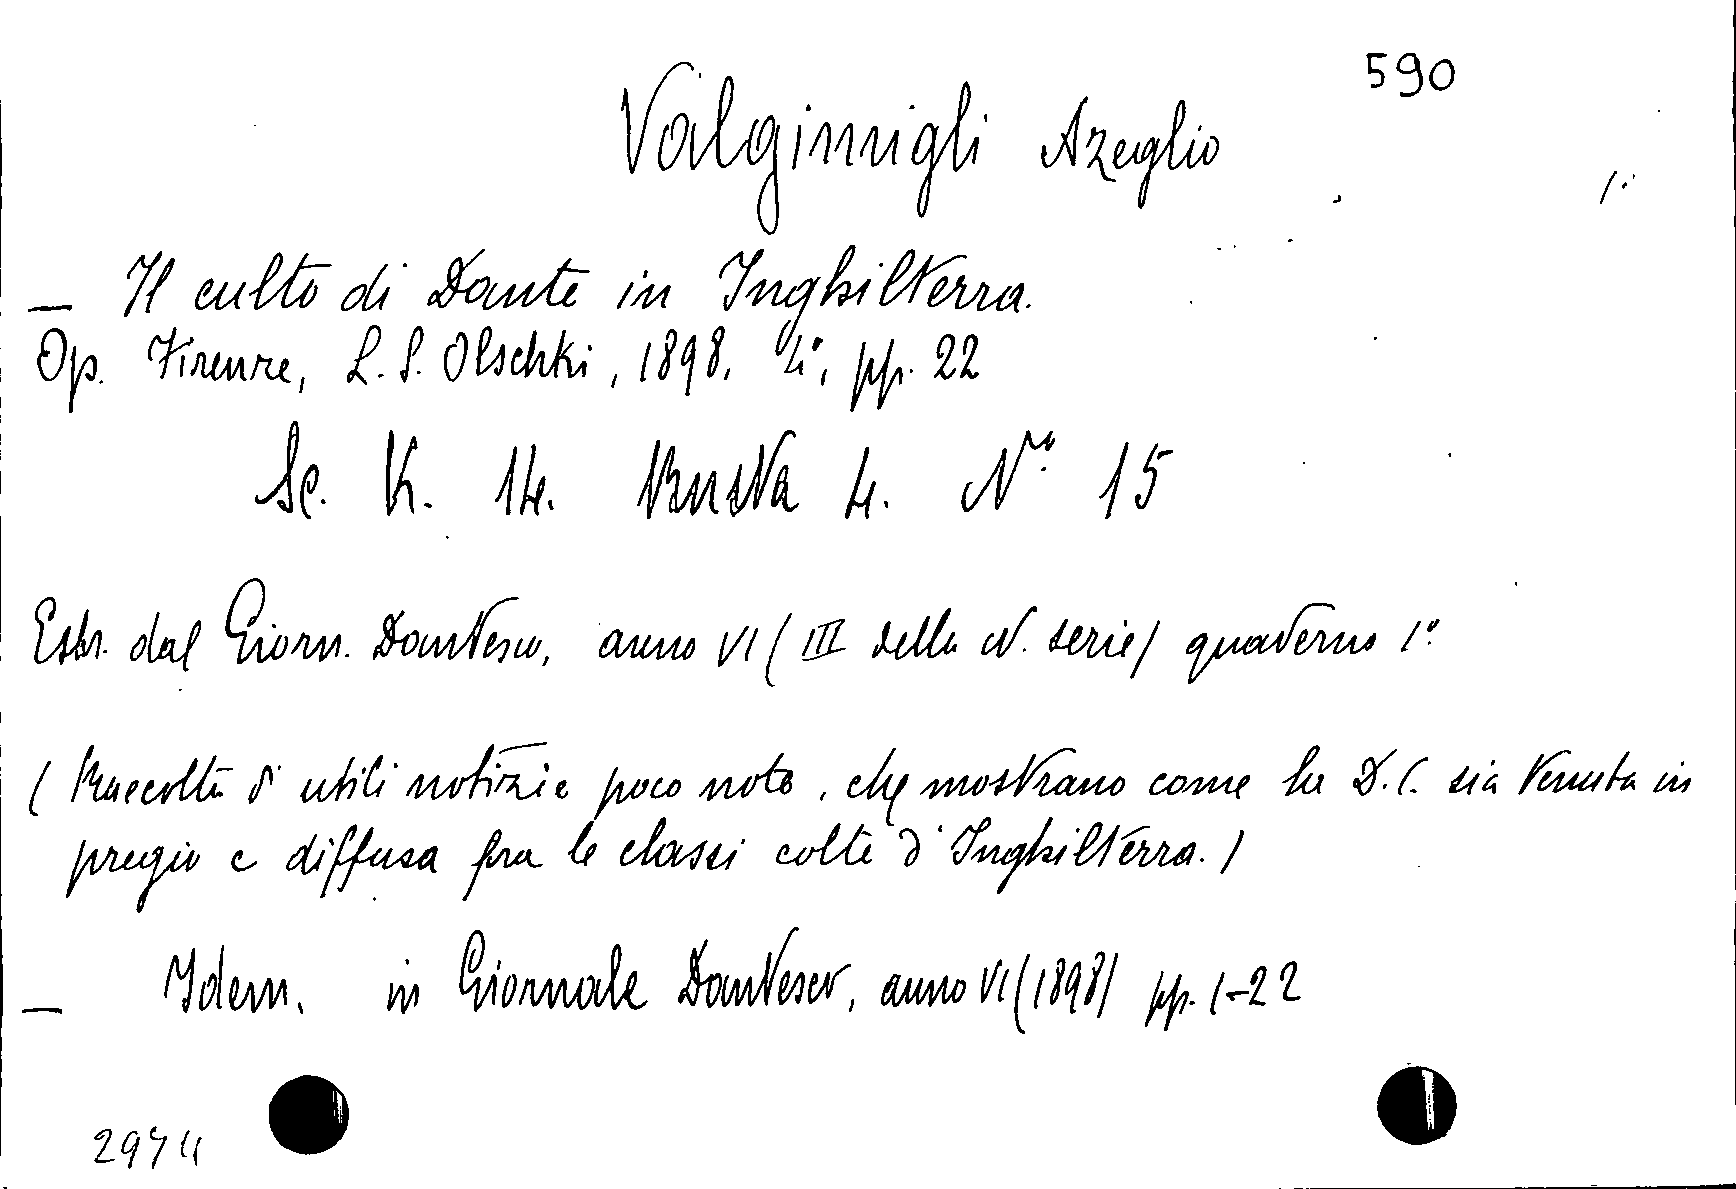 590
Valgimigli Azeglio
— Il culto di Dante in Inghilterra.
Op. Firenze, L. S. Olschki, 1898, 4°, pp. 22
Sc. K. 14. Busta 4. N° 15
Estr. dal Giorn. Dantesco, anno VI (III della N. serie) quaderno 1°
(Raccolta di utili notizie poco note, che mostrano come la D.C. sia tenuta in
pregio e diffusa fra le classi colte d'Inghilterra.)
— Idem. in Giornale Dantesco, anno VI (1898) pp. 1-22
2974